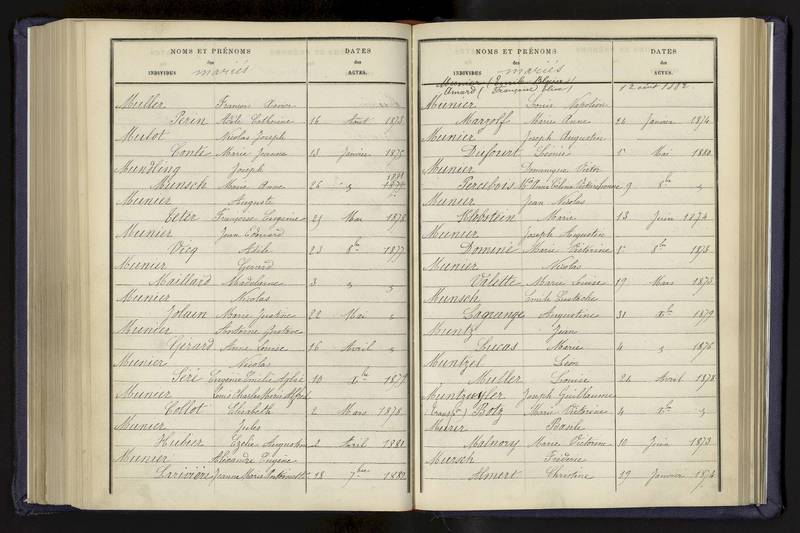 NOMS ET PRÉNOMS
des
INDIVIDUS mariés
DATES
des
ACTES.
Muller François Xavier
Perin Adèle Catherine 16 Août 1873
Mulot Nicolas Joseph
Conti Marie Jeanne 13 Janvier 1875
Mundling Joseph
Munsch Marie Anne 26 "
Munier Auguste
Teter Françoise Eugénie 29 Mai 1878
Munier Jean Edouard
Vicq Adèle 23 8bre 1877
Munier Gérard
Maillard Madeleine 3 " "
Munier Nicolas
Jolain Marie Justine 22 Mai "
Munier Antoine Gustave
Gérard Anne Louise 16 Avril "
Munier Nicolas
Séré Eugénie Emilie Aglaé 10 1879
Munier Louis Charles Marie Alfred
Collot Elisabeth 2 Mars 1878
Munier Jules
Hubier Augustine 2 Avril 1881
Munier Alexandre Eugène
Larivière Jeanne Marie 18 7bre 1880
NOMS ET PRÉNOMS
des
INDIVIDUS mariés
DATES
des
ACTES.
Munier (Emile
Amard (Françoise Elise) 12 août 1882.
Munier Louis Napoléon
Margolf Marie Anne 24 Janvier 1874
Munier Joseph Augustin
Dufourt Léonie 5 Mai 1880
Munier Dominique Victor
Percebois 9 8bre "
Munier Jean Nicolas
Klebstein Marie 13 Juin 1874
Munier Joseph Augustin
Dominé Marie Victorine 8bre 1875
Munier Nicolas
Valette Marie Louise 19 Mars 1875
Munsch Emile Eustache
Lagrange Augustine 31 1879
Muntz Jean
Lucas Marie 4 " 1876
Muntzel Léon
Muller Louise 24 Avril 1878
Joseph Guillaume
Botz Marie Victorine 4 "
Murer Basile
Malnory Marie Victorine 10 Juin 1873
Mursch Frédéric
Almert Christine 19 Janvier 1874